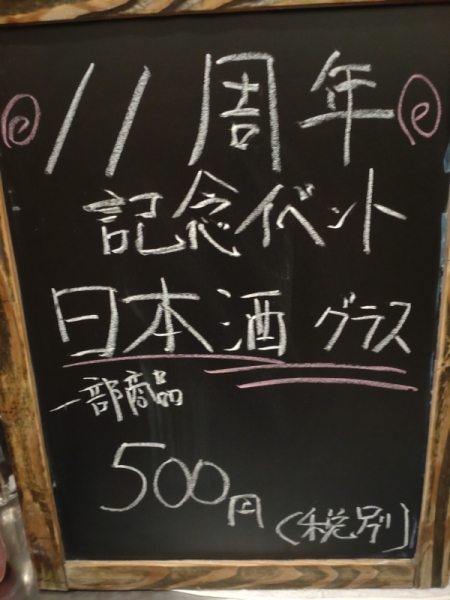 11周年
記念イベント
日本酒 グラス
一部商品
500円
(税別)